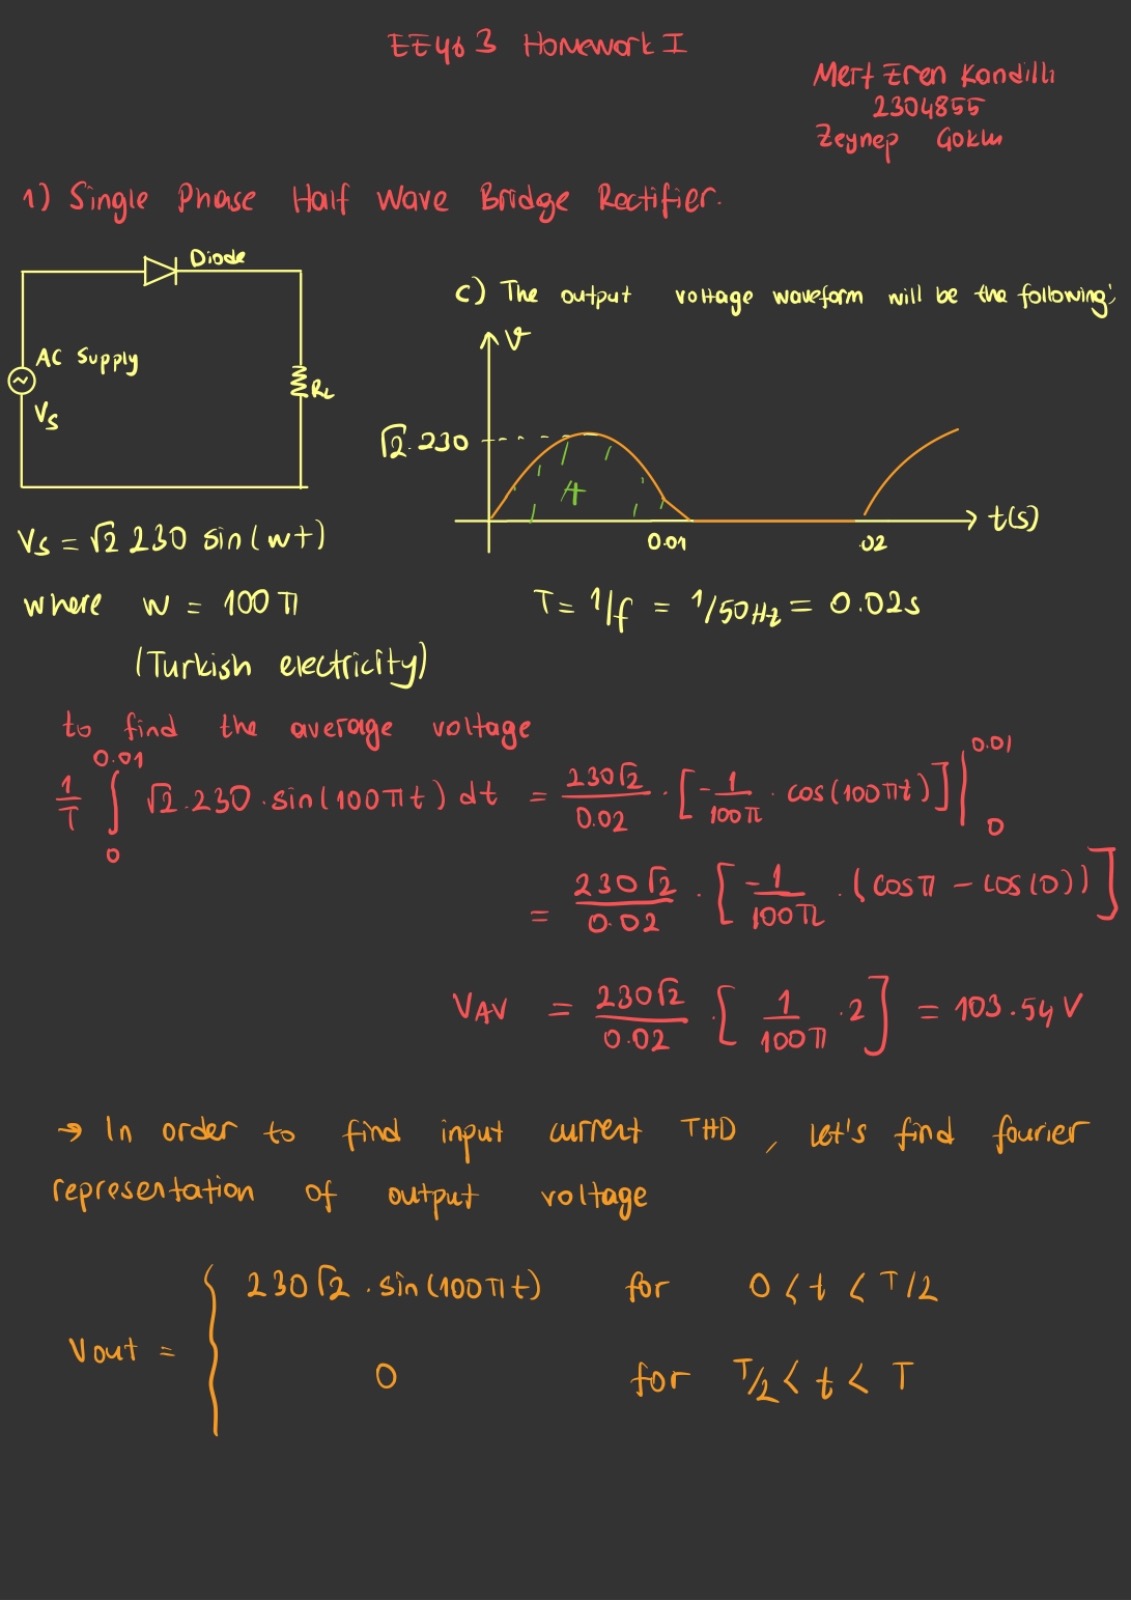 EE463 Homework I
Mert Eren Kandilli
2304855
Zeynep
1) Single Phase Half Wave Bridge Rectifier.
Diode
AC Supply
Vs
RL
Vs = √2 230 sin(wt)
where w = 100π
(Turkish electricity)
c) The output voltage waveform will be the following:
V
√2.230
A
0.01
.02
t(s)
T = 1/f = 1/50Hz = 0.02s
to find the average voltage
1/T ∫₀^0.01 √2.230.sin(100πt) dt = 230√2/0.02 . [-1/100π . cos(100πt)] |₀^0.01
= 230√2/0.02 . [-1/100π . (cosπ - cos(0))]
VAV = 230√2/0.02 . [1/100π . 2] = 103.54 V
→ In order to find input current THD, let's find fourier
representation of output voltage
Vout = {
230√2 . sin(100πt) for 0 < t < T/2
0 for T/2 < t < T